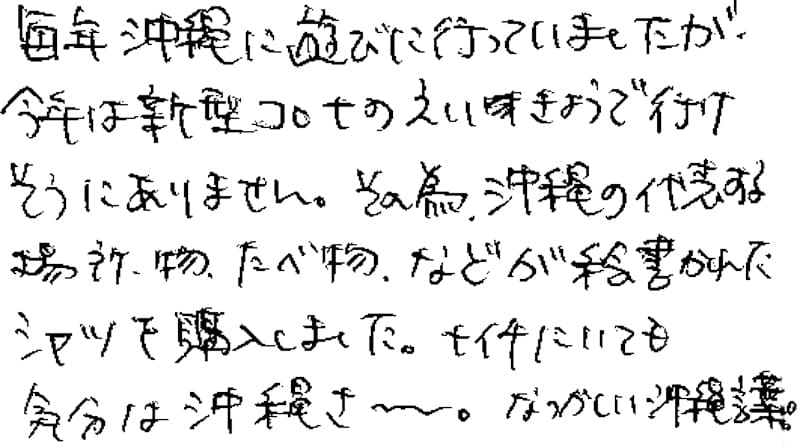 毎年沖縄に遊びに行っていましたが、
今年は新型コロナのえい味きょうで行け
そうにありません。その為、沖縄の代表する
場所、物、たべ物、などが絵書かれた
シャツを購入しました。ナイチにいても
気分は沖縄さ〜〜。なつかしい沖縄